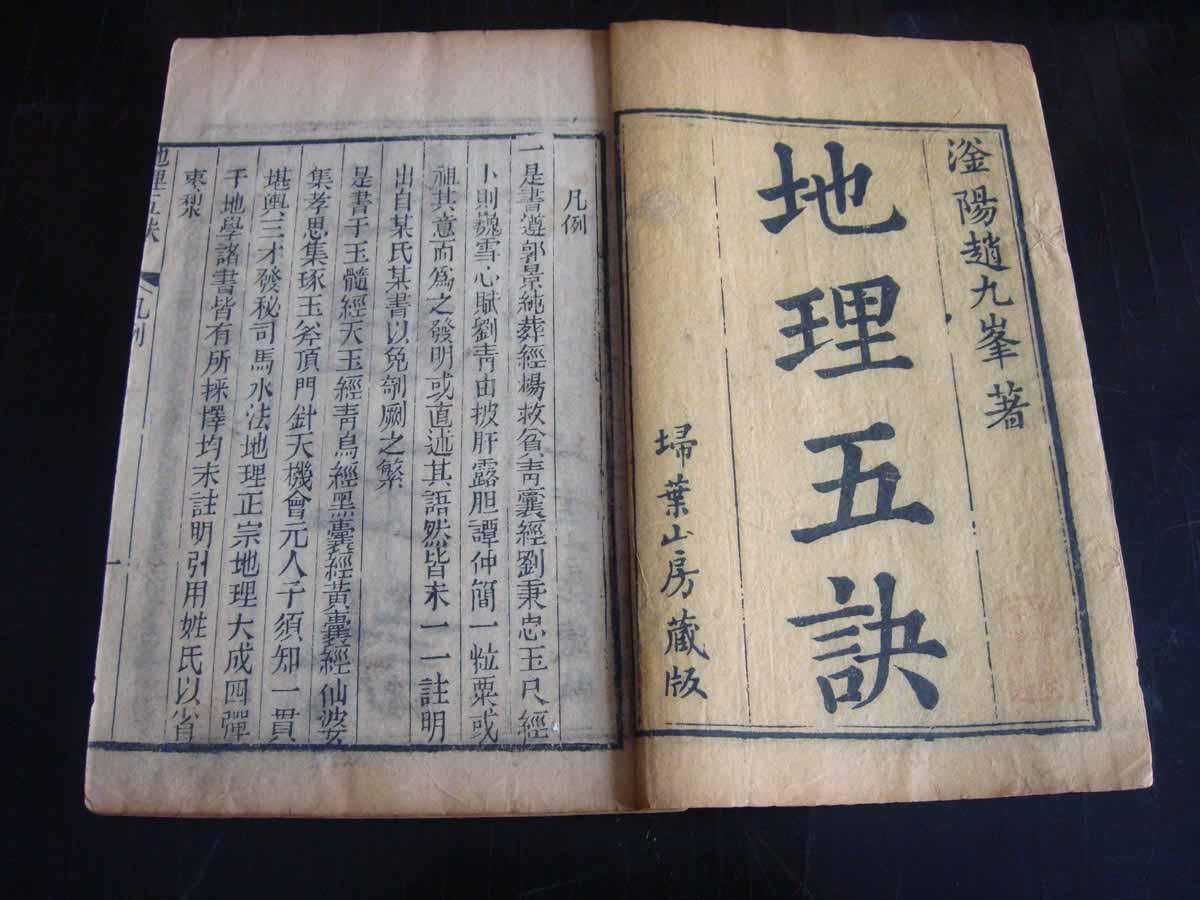 滏陽趙九峯著
地理五訣
埽葉山房藏版
凡例
一是書遵郭景純葬經楊救貧靑囊經劉秉忠玉尺經
卜則巍雪心賦劉靑田披肝露胆譚仲簡一粒粟或
祖其意而爲之發明或直述其語然皆未一一註明
出自某氏某書以免剞劂之繁
是書于玉髓經天玉經靑烏經黑囊經黃囊經仙婆
集孝思集琢玉斧頂門針天機會元人子須知一貫
堪輿三才發秘司馬水法地理正宗地理大成四彈
子地學諸書皆有所採擇均未註明引用姓氏以省
棗梨
地理五訣
凡例
一